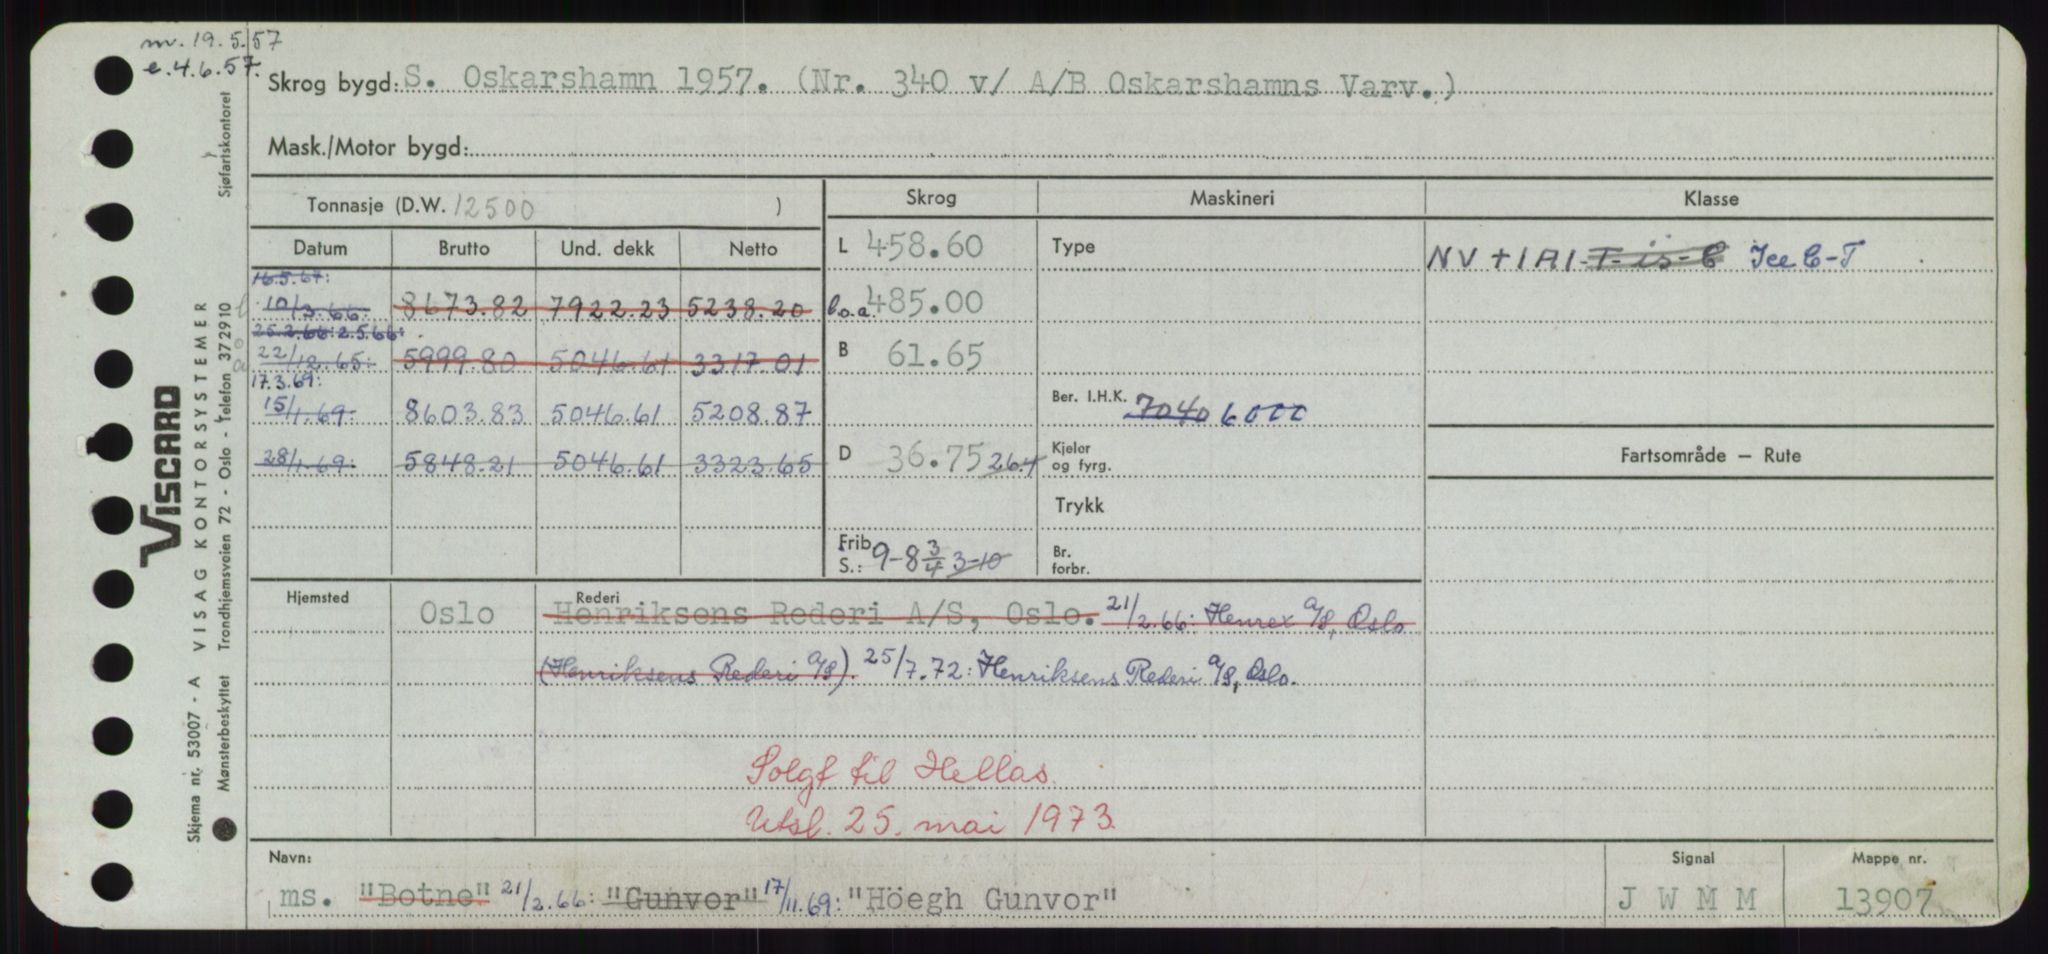 m. 19.5.57
e. 4.6.57.
Skrog bygd: S. Oskarshamn 1957. (Nr. 340 v/ A/B Oskarshamns Varv.)
Mask./Motor bygd:
Tonnasje (D.W. 12500 )
Skrog Maskineri Klasse
Datum Brutto Und. dekk Netto
L 458.60 Type NV + 1A1-T-is-C Ice C-T
16.5.67:
10/3.66: 8673.82 7922.23 5238.20 l.o.a. 485.00
25.2.66: 2.5.66:
22/12.65: 5999.80 5046.61 3317.01 B 61.65
17.3.69:
15/1.69: 8603.83 5046.61 5208.87 Ber. I.H.K. 7040 6000
28/1.69: 5848.21 5046.61 3323.65 D 36.75 26.4 Kjeler og fyrg. Fartsområde – Rute
Trykk
Frib. S.: 9-8 3/4 3-10 Br. forbr.
Hjemsted Oslo Rederi Henriksens Rederi A/S, Oslo. 21/2.66: Henrex A/S, Oslo
(Henriksens Rederi A/S). 25/7.72: Henriksens Rederi A/S, Oslo.
Solgt til Hellas.
Utsl. 25. mai 1973.
Navn: Signal Mappe nr.
ms. "Botne" 21/2.66: "Gunvor" 17/11.69: "Höegh Gunvor" J W M M 13907
VISCARD
Skjema nr. 53007 - A VISAG KONTORSYSTEMER
Mønsterbeskyttet Trondhjemsveien 72 - Oslo - Telefon 372910 Sjøfartskontoret